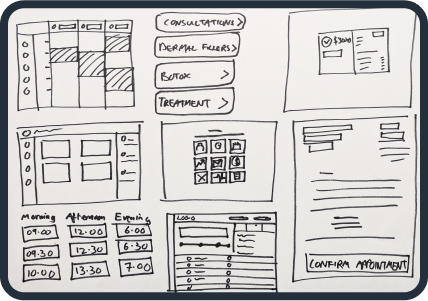 CONSULTATIONS >
DERMAL FILLERS >
BOTOX >
TREATMENT >
$3000
Morning Afternoon Evening
09.00 12.00 6.00
09.30 12.30 6.30
10.00 13.30 7.00
LOGO
CONFIRM APPOINTMENT